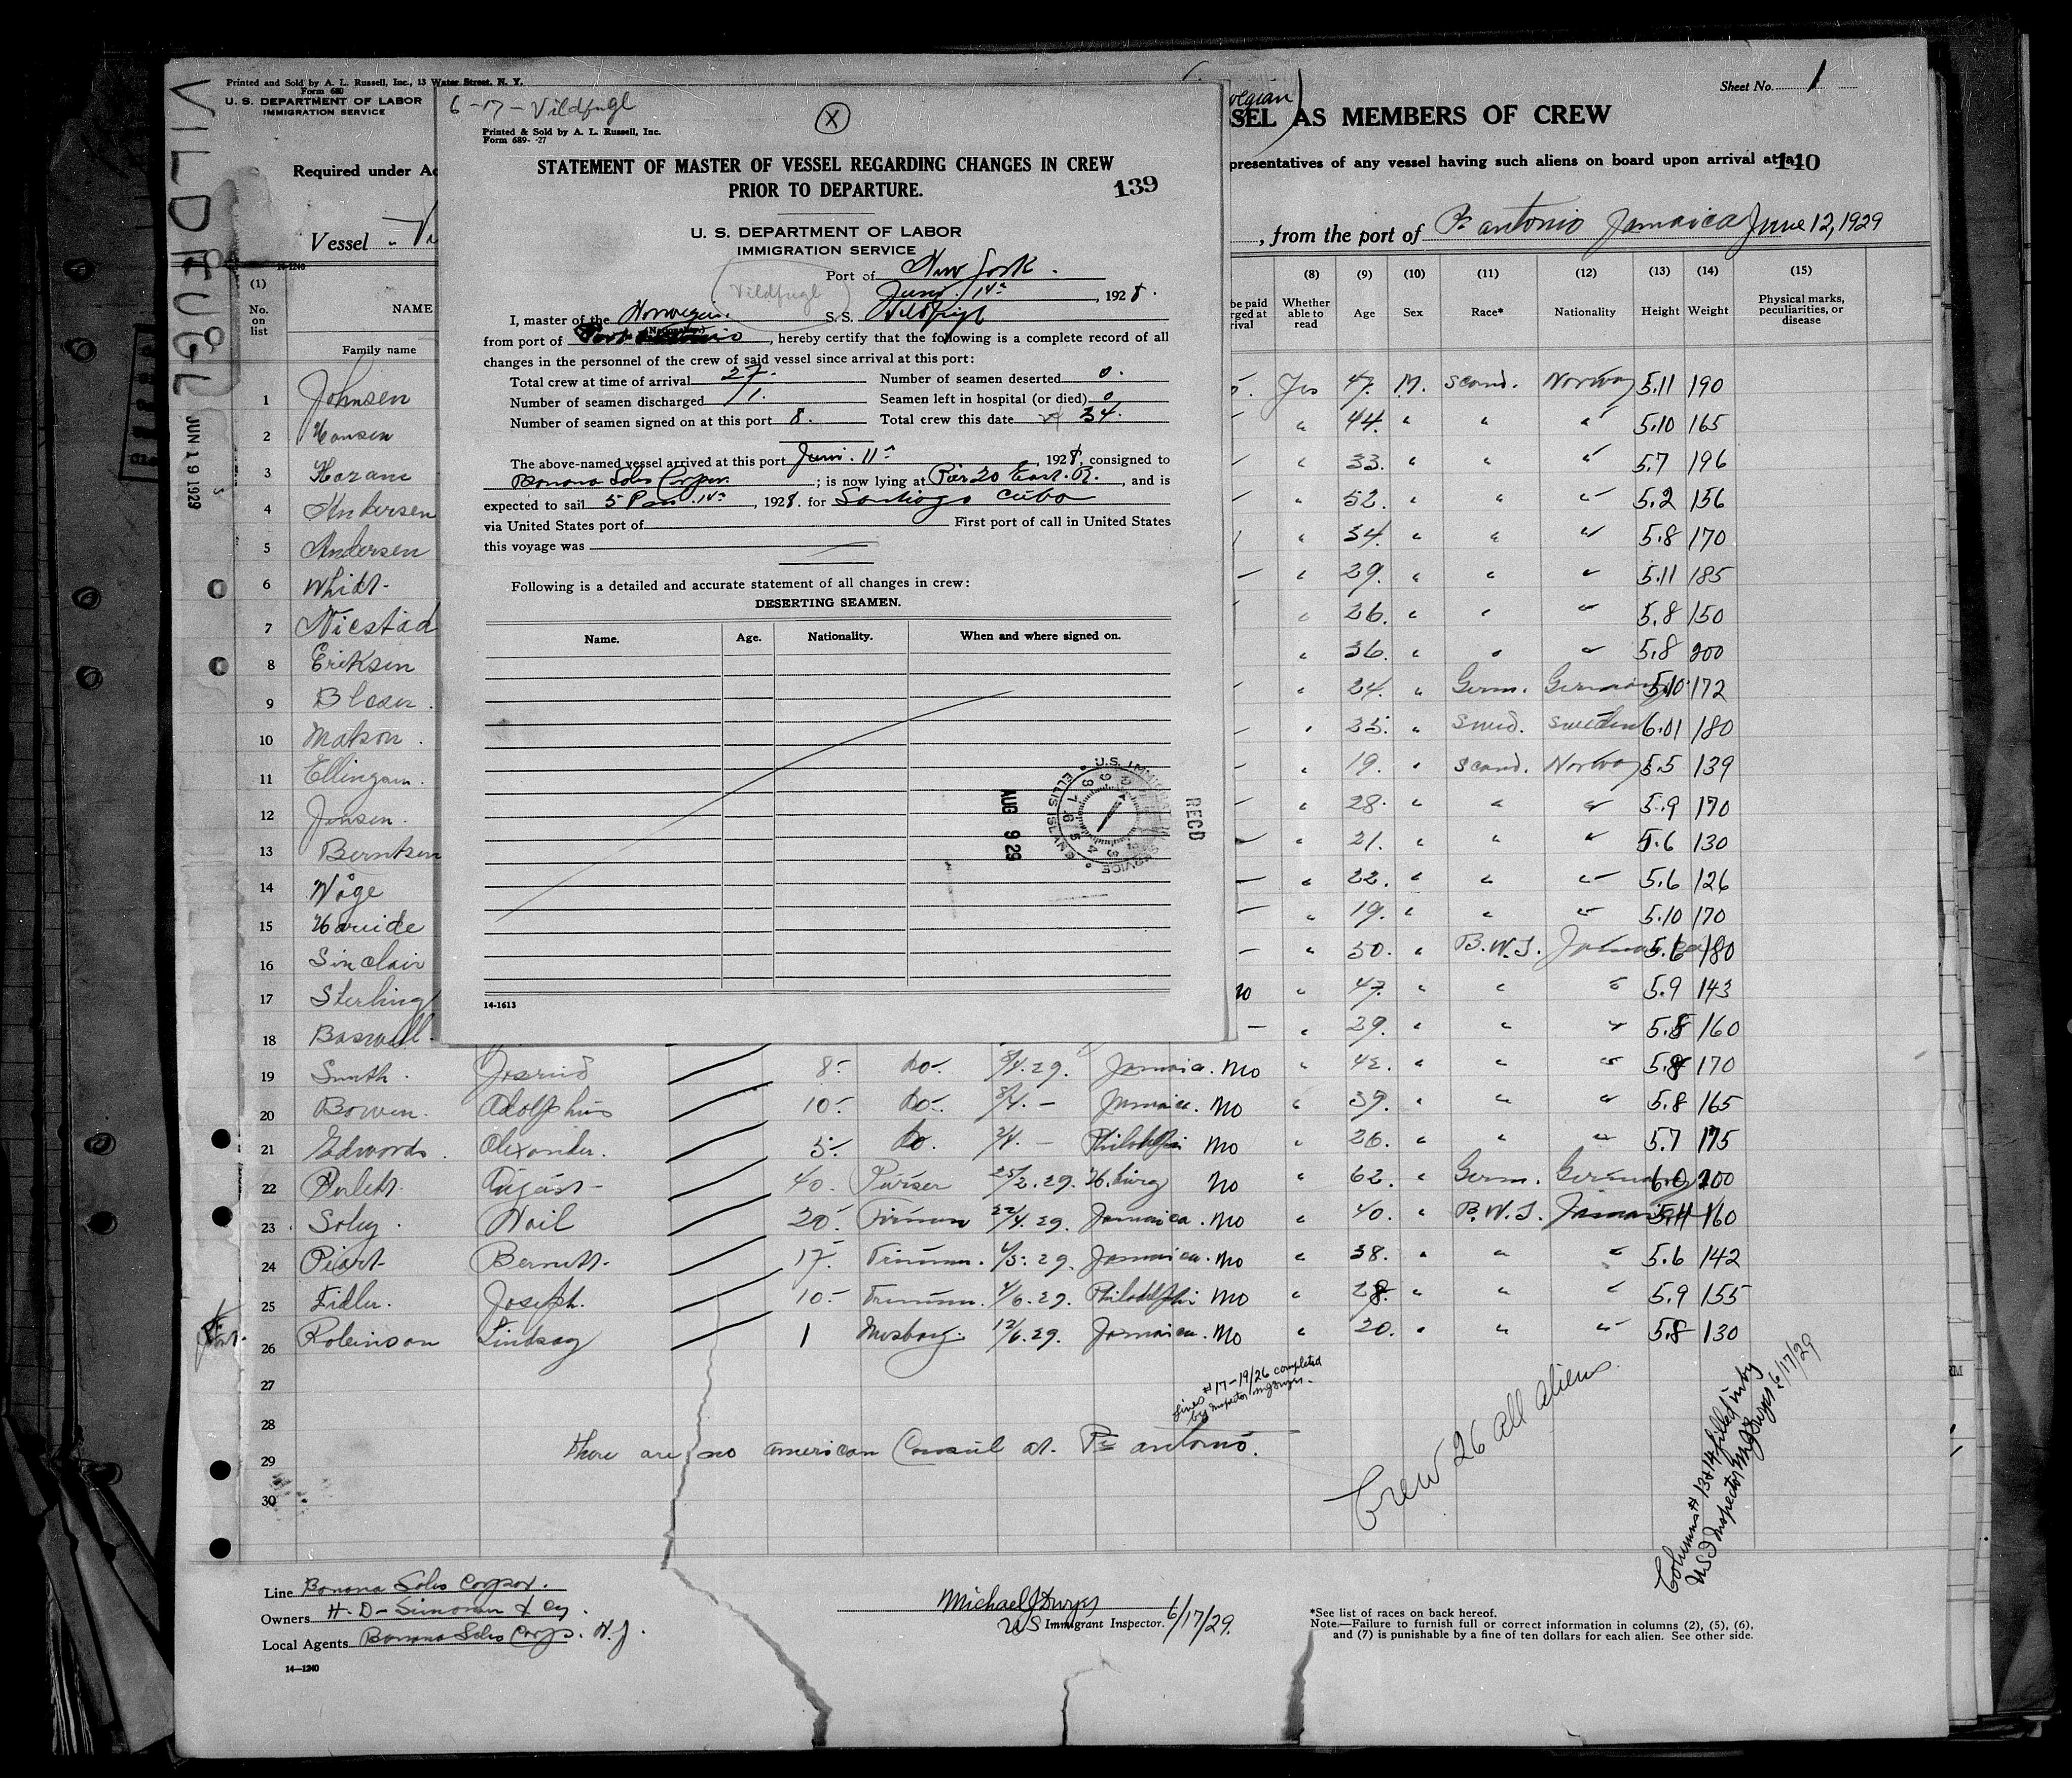 VILDFUGL
JUN 19 1929
Printed and Sold by A. L. Russell, Inc., 13 Water Street, N. Y.
Form 680
U. S. DEPARTMENT OF LABOR
IMMIGRATION SERVICE
Required under Ac
Vessel
14-1240
Sheet No. 1
SEL AS MEMBERS OF CREW
presentatives of any vessel having such aliens on board upon arrival at a
140
, from the port of Pt antonio Jamaica June 12, 1929
6-17- Vildfugl
X
Printed & Sold by A. L. Russell, Inc.
Form 689- -27
STATEMENT OF MASTER OF VESSEL REGARDING CHANGES IN CREW
PRIOR TO DEPARTURE.
139
U. S. DEPARTMENT OF LABOR
IMMIGRATION SERVICE
Port of New York.
Vildfugl
Juni. 14, 1928.
I, master of the Norwegian. S. S. Vildfugl
(Nationality)
from port of Port Antonio, hereby certify that the following is a complete record of all
changes in the personnel of the crew of said vessel since arrival at this port:
Total crew at time of arrival 27. Number of seamen deserted 0.
Number of seamen discharged 1. Seamen left in hospital (or died) 0
Number of seamen signed on at this port 8. Total crew this date 34.
The above-named vessel arrived at this port Juni. 11, 1928, consigned to
Banana Sales Corpor.; is now lying at Pier 20 East. R., and is
expected to sail 5 Pm 14, 1928. for Santiago Cuba
via United States port of First port of call in United States
this voyage was
Following is a detailed and accurate statement of all changes in crew:
DESERTING SEAMEN.
Name. Age. Nationality. When and where signed on.
U.S. IMMIGRATION SERVICE ELLIS ISLAND
AUG 9 29
RECD
14-1613
(1) (8) (9) (10) (11) (12) (13) (14) (15)
No. on list NAME Whether able to read Age Sex Race* Nationality Height Weight Physical marks, peculiarities, or disease
Family name
1 Johnsen Yes 47. M. Scand. Norway 5.11 190
2 Hansen " 44. " " " 5.10 165
3 Haram " 33. " " " 5.7 196
4 Andersen " 52. " " " 5.2 156
5 Andersen " 34. " " " 5.8 170
6 Whidt. " 29. " " " 5.11 185
7 Nicstad " 26. " " " 5.8 150
8 Eriksen " 36. " " " 5.8 200
9 Blaser. " 24. " Germ. Germany 5.10 172
10 Matson. " 25. " Swed. Sweden 6.01 180
11 Ellingsen. " 19. " Scand. Norway 5.5 139
12 Jensen. " 28. " " " 5.9 170
13 Berntsen " 21. " " " 5.6 130
14 Våge " 22. " " " 5.6 126
15 Hareide " 19. " " " 5.10 170
16 Sinclair " 50. " B.W.I. Jamaica 5.6 180
17 Sterling no " 47. " " " 5.9 143
18 Baswell. " 29. " " " 5.8 160
19 Smith. 8- do. 8/4.29. Jamaica. No " 42. " " " 5.8 170
20 Bowen. Adolphus 10- do. 8/4. - Jamaica. No " 39. " " " 5.8 165
21 Edwards. Alexander. 5- do. 2/4. - Philadelphi No " 26. " " " 5.7 175
22 August- 40. Purser 25/2.29. H.burg No " 62. " Germ. Germany 6.0 200
23 Soley. Nail 20- Fireman 22/4.29. Jamaica. No " 40. " B.W.I. Jamaica 5.11 160
24 Piart- Bernett. 17- Trimmer. 4/5.29. Jamaica. No " 38. " " " 5.6 142
25 Fidler. Joseph. 10- Trimmer. 4/6.29. Philadelphi No " 28. " " " 5.9 155
26 Robinson Lindsay 1 Messboy. 12/6.29. Jamaica. No " 20. " " " 5.8 130
27
28
29
30
Lines #17-19/26 completed
by Inspector MJDwyer.
there are no american Consul at. Pt antonio.
Crew 26 all aliens
Columns # 13 & 14 filled in by
US I Inspector MJDwyer. 6/17/29
Line Banana Sales Corpor.
Owners H. D- Simonsen & Co.
Local Agents Banana Sales Corp. N.Y.
14-1240
Michael J Dwyer
US Immigrant Inspector. 6/17/29.
*See list of races on back hereof.
Note.—Failure to furnish full or correct information in columns (2), (5), (6),
and (7) is punishable by a fine of ten dollars for each alien. See other side.